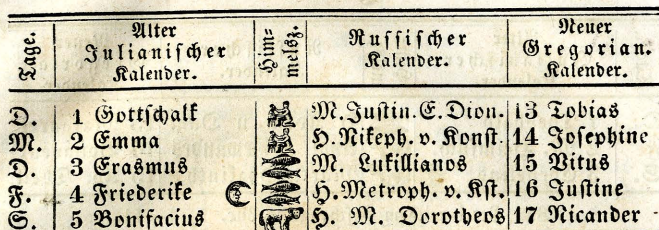 Tage.
Alter
Julianischer
Kalender.
Him-
melsz.
Russischer
Kalender.
Neuer
Gregorian.
Kalender.
D. 1 Gottschalk M. Justin. E. Dion. 13 Tobias
M. 2 Emma H. Nikeph. v. Konst. 14 Josephine
D. 3 Erasmus M. Lukillianos 15 Vitus
F. 4 Friederike H. Metroph. v. Kst. 16 Justine
S. 5 Bonifacius H. M. Dorotheos 17 Nicander